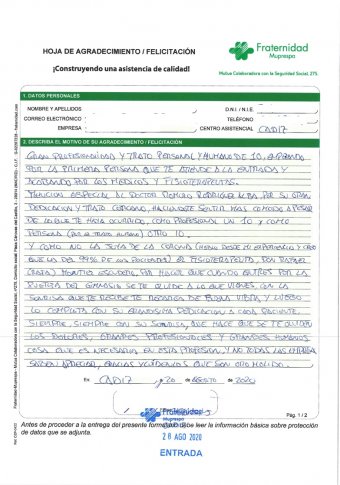 HOJA DE AGRADECIMIENTO / FELICITACIÓN
Fraternidad
Muprespa
¡Construyendo una asistencia de calidad!
Mutua Colaboradora con la Seguridad Social, 275
1. DATOS PERSONALES
NOMBRE Y APELLIDOS
D.N.I. / N.I.E.
CORREO ELECTRÓNICO
TELÉFONO
EMPRESA
CENTRO ASISTENCIAL CADIZ
2. DESCRIBA EL MOTIVO DE SU AGRADECIMIENTO / FELICITACIÓN
GRAN PROFESIONALIDAD Y TRATO PERSONAL Y HUMANO DE 10, EMPEZANDO
POR LA PRIMERA PERSONA QUE TE ATIENDE A LA ENTRADA Y
ACABANDO POR LOS MEDICOS Y FISIOTERAPEUTAS.
MENCION ESPECIAL AL DOCTOR ROMERO RODRIGUEZ ALBA, POR SU GRAN
DEDICACION Y TRATO COTIDIANO, HACIENDOTE SENTIR MAS COMODO A PESAR
DE LO QUE TE HAYA OCURRIDO, COMO PROFESIONAL UN 10 Y COMO
PERSONA (POR EL TRATO HUMANO) OTRO 10.
Y COMO NO LA JOYA DE LA CORONA (HABLO DESDE MI EXPERIENCIA Y CREO
QUE LA DEL 99% DE SUS PACIENTES) AL FISIOTERAPEUTA, DON RAFAEL
(RAFA) MONTIEL ESCUDERO, POR HACER QUE CUANDO ENTRES POR LA
PUERTA DEL GIMNASIO SE TE OLVIDE A LO QUE VIENES, CON LA
SONRISA QUE TE RECIBE TE RECARGA DE BUENA VIBRA, Y LUEGO
LO COMPLETA CON SU GRANDISIMA DEDICACION A CADA PACIENTE.
SIEMPRE, SIEMPRE CON SU SONRISA, QUE HACE QUE SE TE OLVIDEN
LOS DOLORES, GRANDES PROFESIONALES Y GRANDES HUMANOS
COSA QUE ES NECESARIA EN ESTA PROFESION, Y NO TODAS LAS EMPRESAS
SABEN APRECIAR, GRACIAS Y CUIDENOS QUE SON ORO MOLIDO.
En CADIZ, 20 de AGOSTO de 2020
Fraternidad
Muprespa
Pág. 1 / 2
Antes de proceder a la entrega del presente formulario debe leer la información básica sobre protección
de datos que se adjunta.
20 AGO 2020
ENTRADA